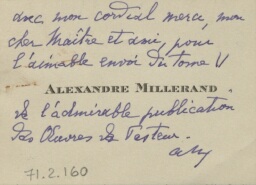 avec mon cordial merci, mon
cher Maître et ami, pour
l'aimable envoi du tome V
ALEXANDRE MILLERAND
de l'admirable publication
des Œuvres de Pasteur.
71.2.160